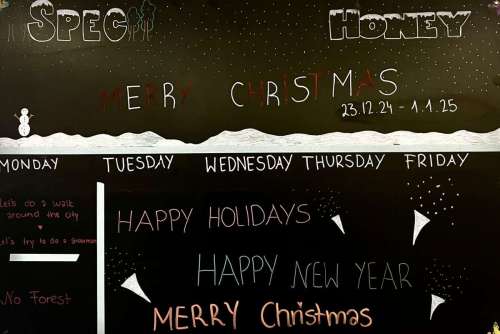 SPEC HONEY
MERRY CHRISTMAS
23.12.24 - 1.1.25
MONDAY TUESDAY WEDNESDAY THURSDAY FRIDAY
Let's do a walk
around the city
Let's try to do a snowman
No Forest
HAPPY HOLIDAYS
HAPPY NEW YEAR
MERRY Christmas